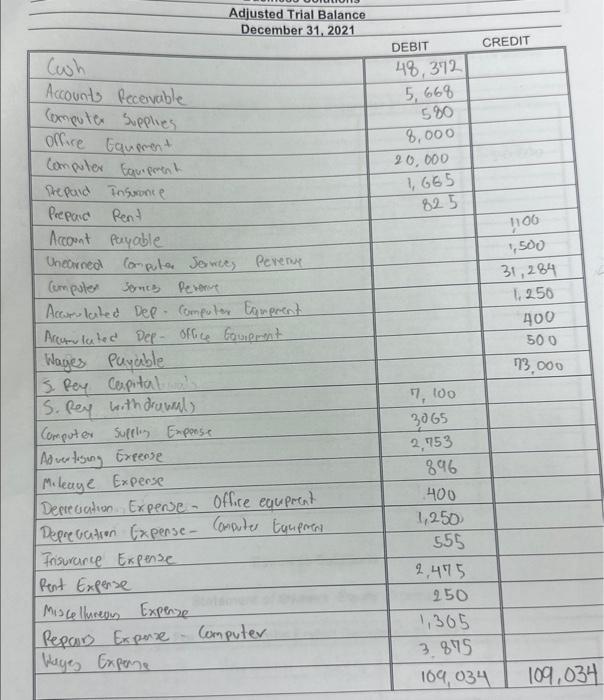 Adjusted Trial Balance
December 31, 2021
DEBIT CREDIT
Cash 48,372
Accounts Receivable 5,668
Computer Supplies 580
Office Equipment 8,000
Computer Equipment 20,000
Prepaid Insurance 1,665
Prepaid Rent 825
Account Payable 1100
Unearned Computer Services Revenue 1,500
Computer Services Revenue 31,284
Accumulated Dep - Computer Equipment 1,250
Accumulated Dep - Office Equipment 400
Wages Payable 500
S. Rey Capital 73,000
S. Rey withdrawals 7,100
Computer Supplies Expense 3065
Advertising Expense 2,753
Mileage Expense 896
Depreciation Expense - Office equipment 400
Depreciation Expense - Computer Equipment 1,250
Insurance Expense 555
Rent Expense 2,475
Miscellaneous Expense 250
Repairs Expense - Computer 1,305
Wages Expense 3,875
109,034 109,034